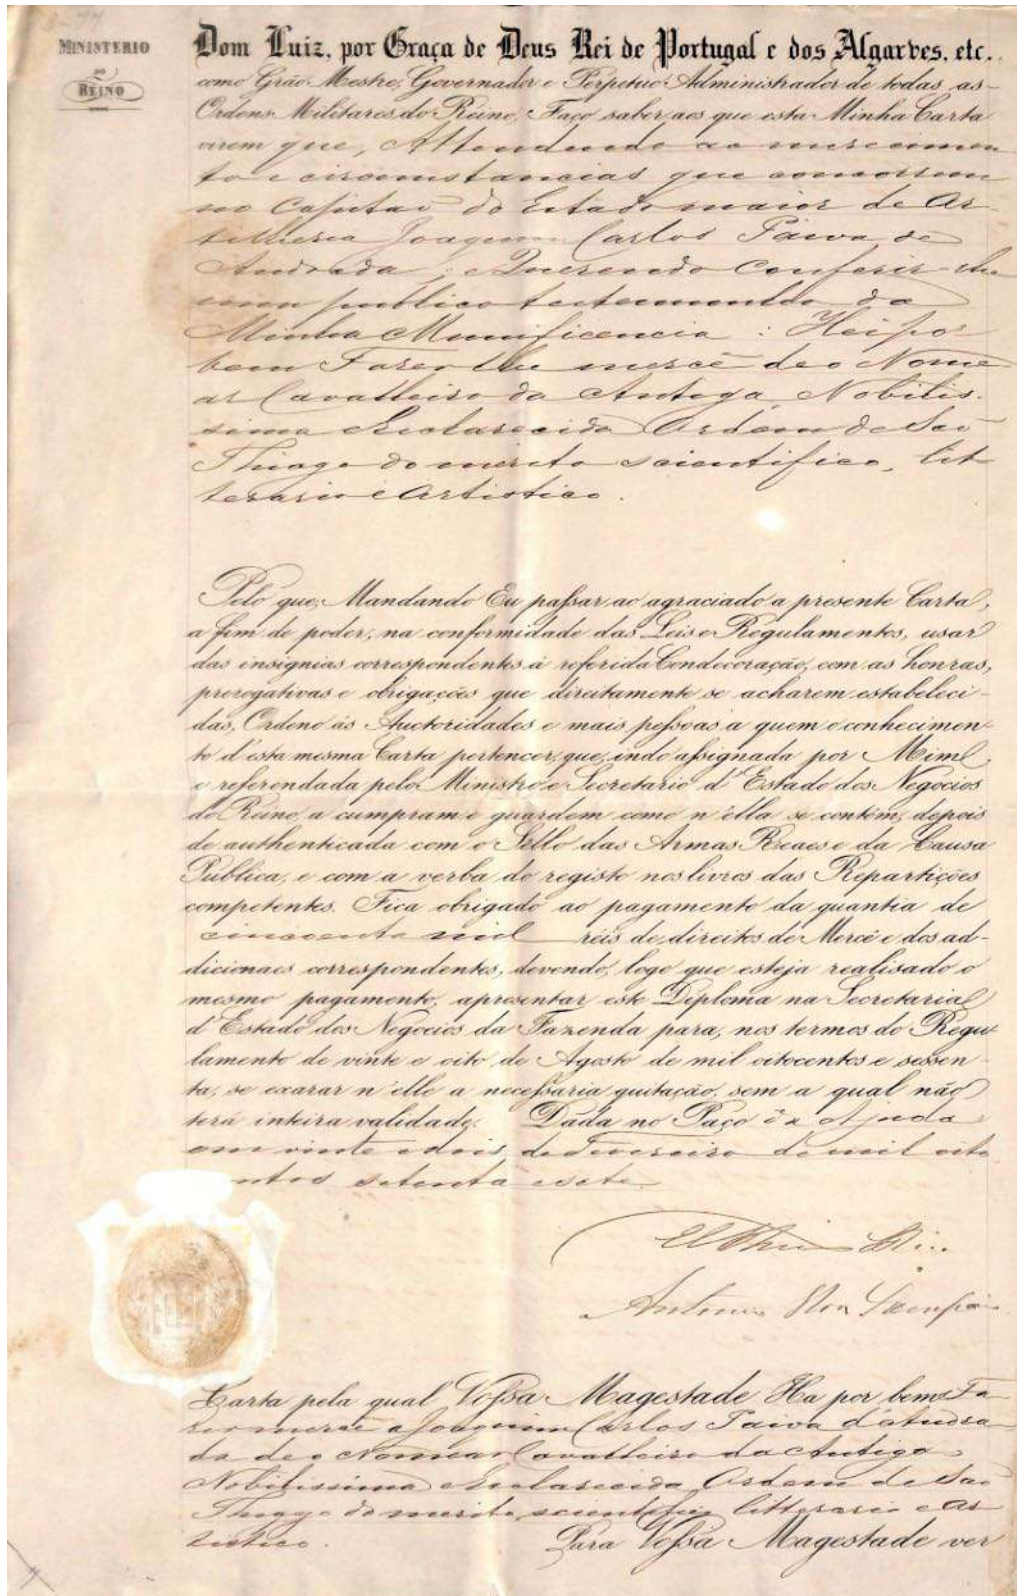 MINISTERIO
DO
REINO
Dom Luiz, por Graça de Deus Rei de Portugal e dos Algarves, etc.
como Grão-Mestre, Governador e Perpetuo Administrador de todas as
Ordens Militares do Reino, Faço saber aos que esta Minha Carta
virem que, Attendendo ao merecimen
to e circumstancias que concorrem
no Capitão do Estado maior de Ar
tilheria Joaquim Carlos Paiva de
Andrada; Querendo Conferir-lhe
um publico testemunho da
Minha Munificencia: Hei por
bem Fazer lhe mercê de o Nome
ar Cavalleiro da Antiga, Nobilis-
sima Esclarecida Ordem de São
Thiago do merito scientifico, lit
terario e Artistico.
Pelo que, Mandando Eu passar ao agraciado a presente Carta,
a fim de poder, na conformidade das Leis e Regulamentos, usar
das insignias correspondentes á referida Condecoração, com as honras,
prerogativas e obrigações que direitamente se acharem estabeleci-
das, Ordeno ás Auctoridades e mais pessoas a quem o conhecimen-
to d'esta mesma Carta pertencer, que, indo assignada por Mim
e referendada pelo Ministro e Secretario d'Estado dos Negocios
do Reino, a cumpram e guardem como n'ella se contém, depois
de authenticada com o Sello das Armas Reaes e da Causa
Publica, e com a verba do registo nos livros das Repartições
competentes. Fica obrigado ao pagamento da quantia de
cincoenta mil réis de direitos de Mercê e dos ad-
dicionaes correspondentes, devendo, logo que esteja realisado o
mesmo pagamento, apresentar este Diploma na Secretaria
d'Estado dos Negocios da Fazenda para, nos termos do Regu-
lamento de vinte e oito de Agosto de mil oitocentos e sessen-
ta, se exarar n'elle a necessaria quitação, sem a qual não
terá inteira validade. Dada no Paço da Ajuda
em vinte e dois de Fevereiro de mil oito
ntos setenta e sete
El Rei
Antonio
Carta pela qual Vossa Magestade Ha por bem Fa
zer mercê a Joaquim Carlos Paiva d'Andra
da de o Nomear Cavalleiro da Antiga
Nobilissima Esclarecida Ordem de São
Thiago do merito scientifico litterario e Ar
tistico. Para Vossa Magestade ver